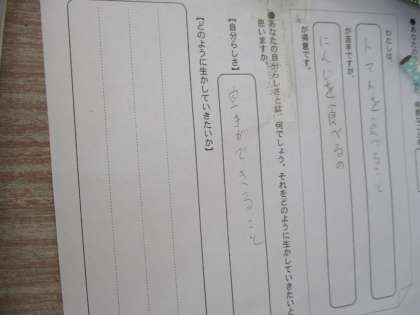 ●あな
わたしは、
トマトを食べること
が苦手ですが、
にんじを食べるの
が得意です。
●あなたの自分らしさとは、何でしょう。それをどのように生かしていきたいと
思いますか。
【自分らしさ】
空手ができること
【どのように生かしていきたいか】